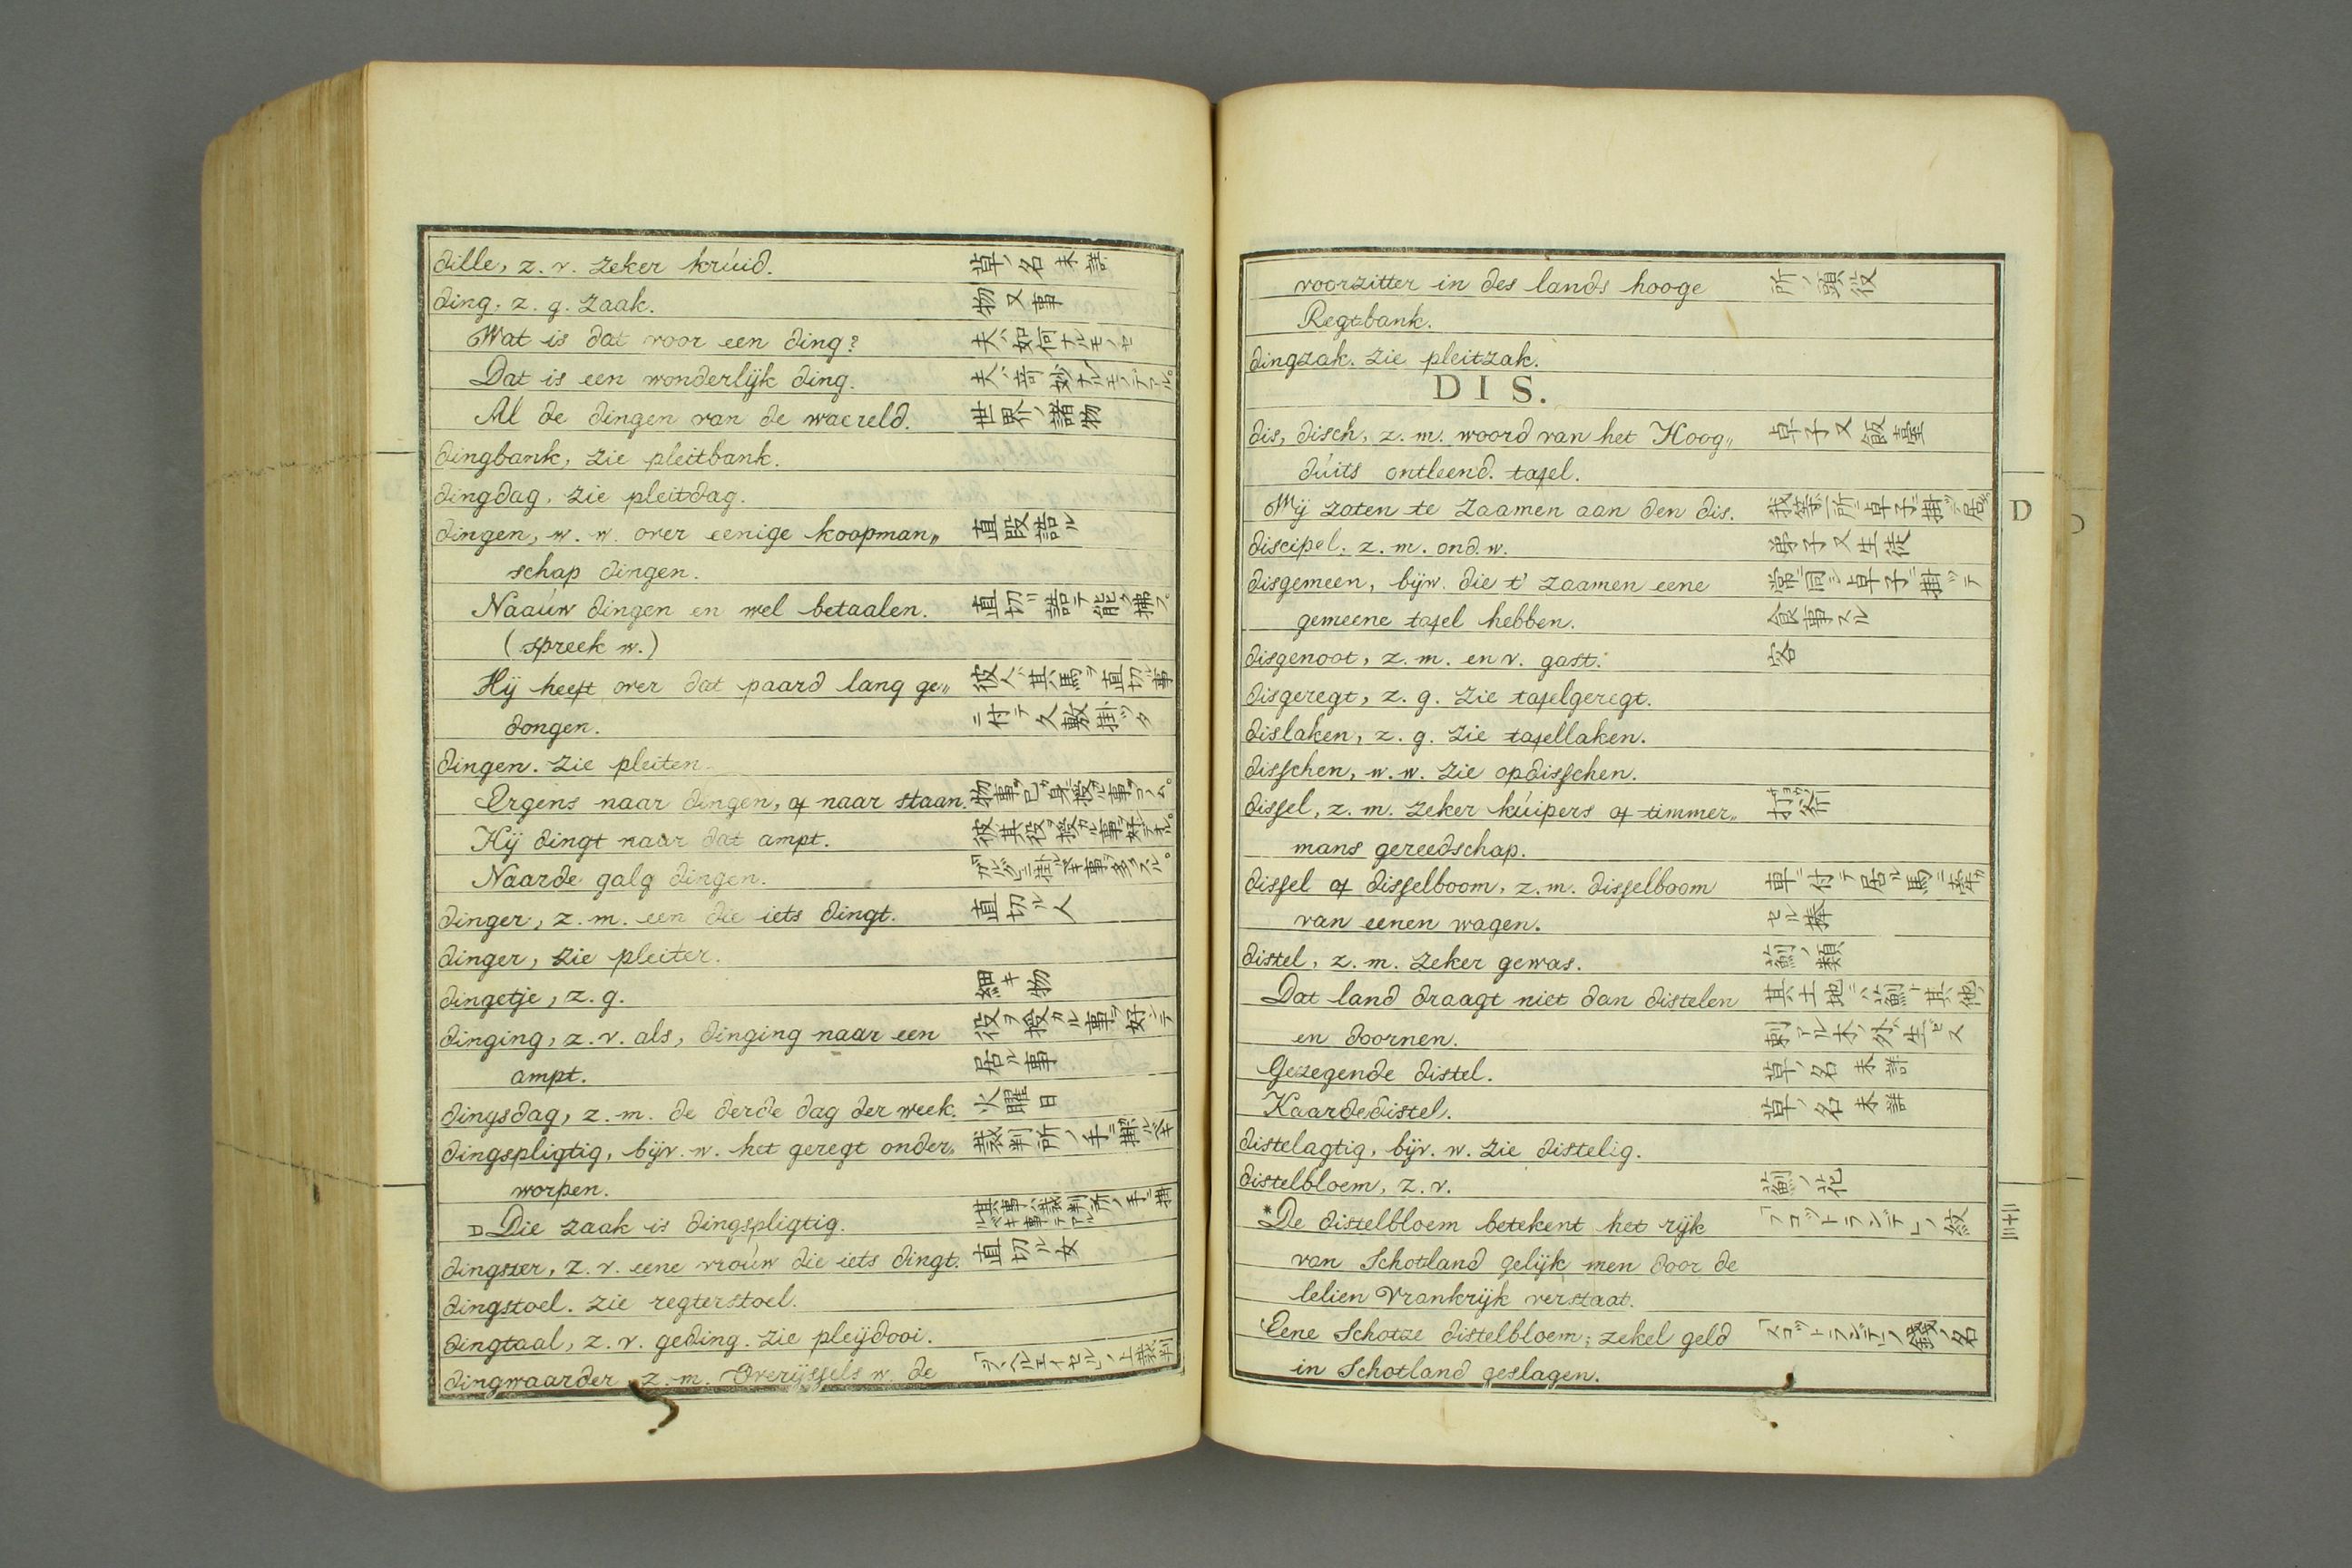 dille, z. v. zeker krúid. 草ノ名未詳
ding, z. g. zaak. 物又事
Wat is dat voor een ding? 夫ハ如何ナルモノゼ
Dat is een wonderlijk ding. 夫ハ奇妙ナルモノデアル。
Al de dingen van de waereld. 世界ノ諸物
dingbank, zie pleitbank.
dingdag, zie pleitdag.
dingen, w. w. over eenige koopman〃 直段誥ル
schap dingen.
Naaúw dingen en wel betaalen. 直切リ誥テ能ク拂フ。
(spreek w.)
Hij heeft over dat paard lang ge〃 彼人ハ其馬ヲ直切ル事
dongen. ニ付テ久敷掛ッタ
dingen. zie pleiten.
Ergens naar dingen, of naar staan.
Hij dingt naar dat ampt.
Naarde galg dingen.
dinger, z. m. een die iets dingt. 直切ル人
dinger, zie pleiter.
dingetje, z. g. 細キ物
dinging, z. v. als, dinging naar een 役ヲ授カル事ヲ好ンテ
ampt. 居ル事
dingsdag, z. m. de derde dag der week. 火曜日
dingspligtig, bijv. w. het geregt onder〃 裁判所ノ手ニ掛ルベキ
worpen.
Die zaak is dingspligtig. 其事ハ裁判所ノ手ニ掛ルベキ事デアル
dingster, z. v. eene vroúw die iets dingt. 直切ル女
dingstoel. zie regterstoel.
dingtaal, z. v. geding. zie pleijdooi.
dingwaarder, z. m. Overijssels w. de
voorzitter in des lands hooge 所ノ頭役
Regtbank.
dingzak. zie pleitzak.
DIS.
dis, disch, z. m. woord van het Hoog〃 卓子又飯臺
dúits ontleend. tafel.
Wij zaten te zaamen aan den dis. 我等一所ニ卓子ニ掛ッテ居タ
discipel. z. m. ond. w. 弟子又生徒
disgemeen, bijw. die t' zaamen eene 常ニ同シ卓子ニ掛ッテ
gemeene tafel hebben. 食事スル
disgenoot, z. m. en v. gast. 客
disgeregt, z. g. zie tafelgeregt.
dislaken, z. g. zie tafellaken.
disschen, w. w. zie opdisschen.
dissel, z. m. zeker kúipers of timmer〃
mans gereedschap.
dissel of disselboom, z. m. disselboom
van eenen wagen. セル棒
distel, z. m. zeker gewas. 薊ノ類
Dat land draagt niet dan distelen 其土地ニハ薊ト其他
en doornen. 刺アル木ノ外生セス
Gezegende distel. 草ノ名未詳
Kaardedistel. 草ノ名未詳
distelagtig, bijv. w. zie distelig.
distelbloem, z. v. 薊ノ花
*De distelbloem betekent het rijk
van Schotland gelijk men door de
lelien Vrankrijk verstaat.
Eene Schotze distelbloem; zekel geld
in Schotland geslagen.
D